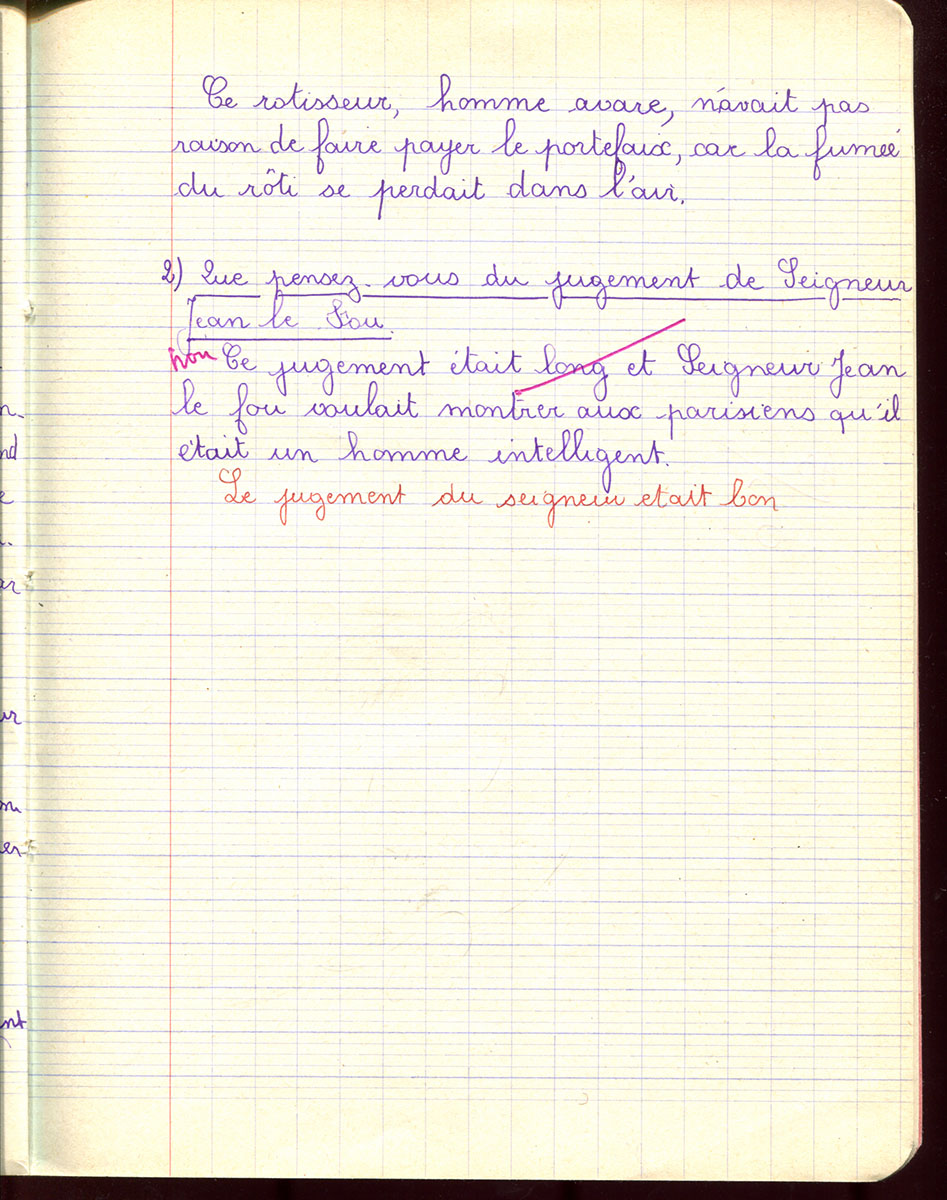 Ce rotisseur, homme avare, n'avait pas
raison de faire payer le portefaix, car la fumeé
du rôti se perdait dans l'air.
2) Que pensez-vous du jugement de Seigneur
Jean le Fou.
non Ce jugement était long et Seigneur Jean
le fou voulait montrer aux parisiens qu'il
était un homme intelligent.
Le jugement du seigneur etait bon